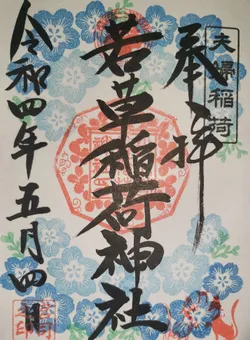 夫婦稲荷
奉拝
若草稲荷神社
令和四年五月四日